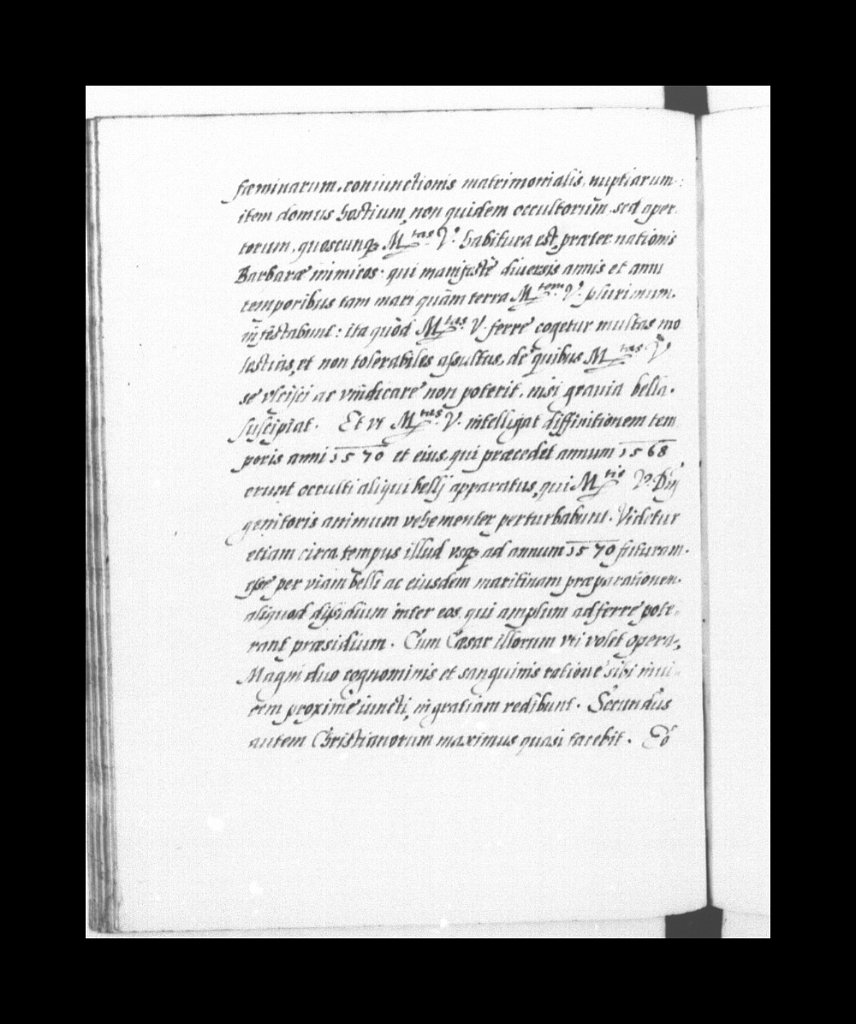 fœminarum, coniunctionis matrimonialis, nuptiarum:
item domus hostium, non quidem occultorum, sed aper
torum, quoscunq M.tas V.a habitura est, præter nationis
Barbaræ inimicos. qui manifestè diversis annis et anni
temporibus tam mari quàm terra M.tem V. plurimum.
infestabunt: ita quòd M.tas V. ferre cogetur multas mo
lestias, et non tolerabiles assultus, de quibus M.tas V
se vlcisci ac vindicare non poterit, nisi gravia bella.
suscipiat. Et vt M.tas V. intelligat diffinitionem tem
poris anni 1570 et eius, qui præcedet annum 1568
erunt occulti aliqui bellj apparatus, qui M.tis V.
genitoris animum vehementer perturbabunt. Videtur
etiam circa tempus illud vsq ad annum 1570 futuram.
esse per viam belli ac eiusdem maritimam præparationem.
aliquod dissidium inter eos, qui amplum adferre pote,
rant præsidium. Cum Cæsar illorum vti volet opera,
Magni duo cognominis et sanguinis ratione sibi inui,
cem proxime iuncti, in gratiam redibunt. Secundus
autem Christianorum maximus quasi tacebit. Eo